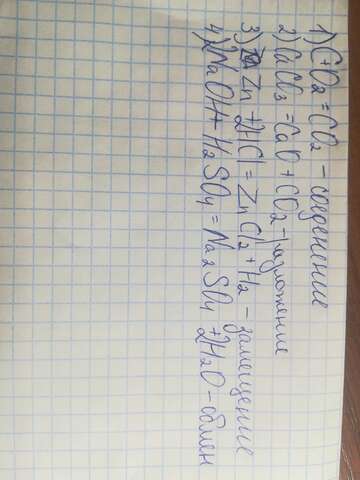 1) C+O2 = CO2 - соеденение
2) CaCO3 = CaO + CO2 - разложение
3) Zn + 2HCl = ZnCl2 + H2 - замещение
4) 2NaOH + H2SO4 = Na2SO4 + 2H2O - обмен